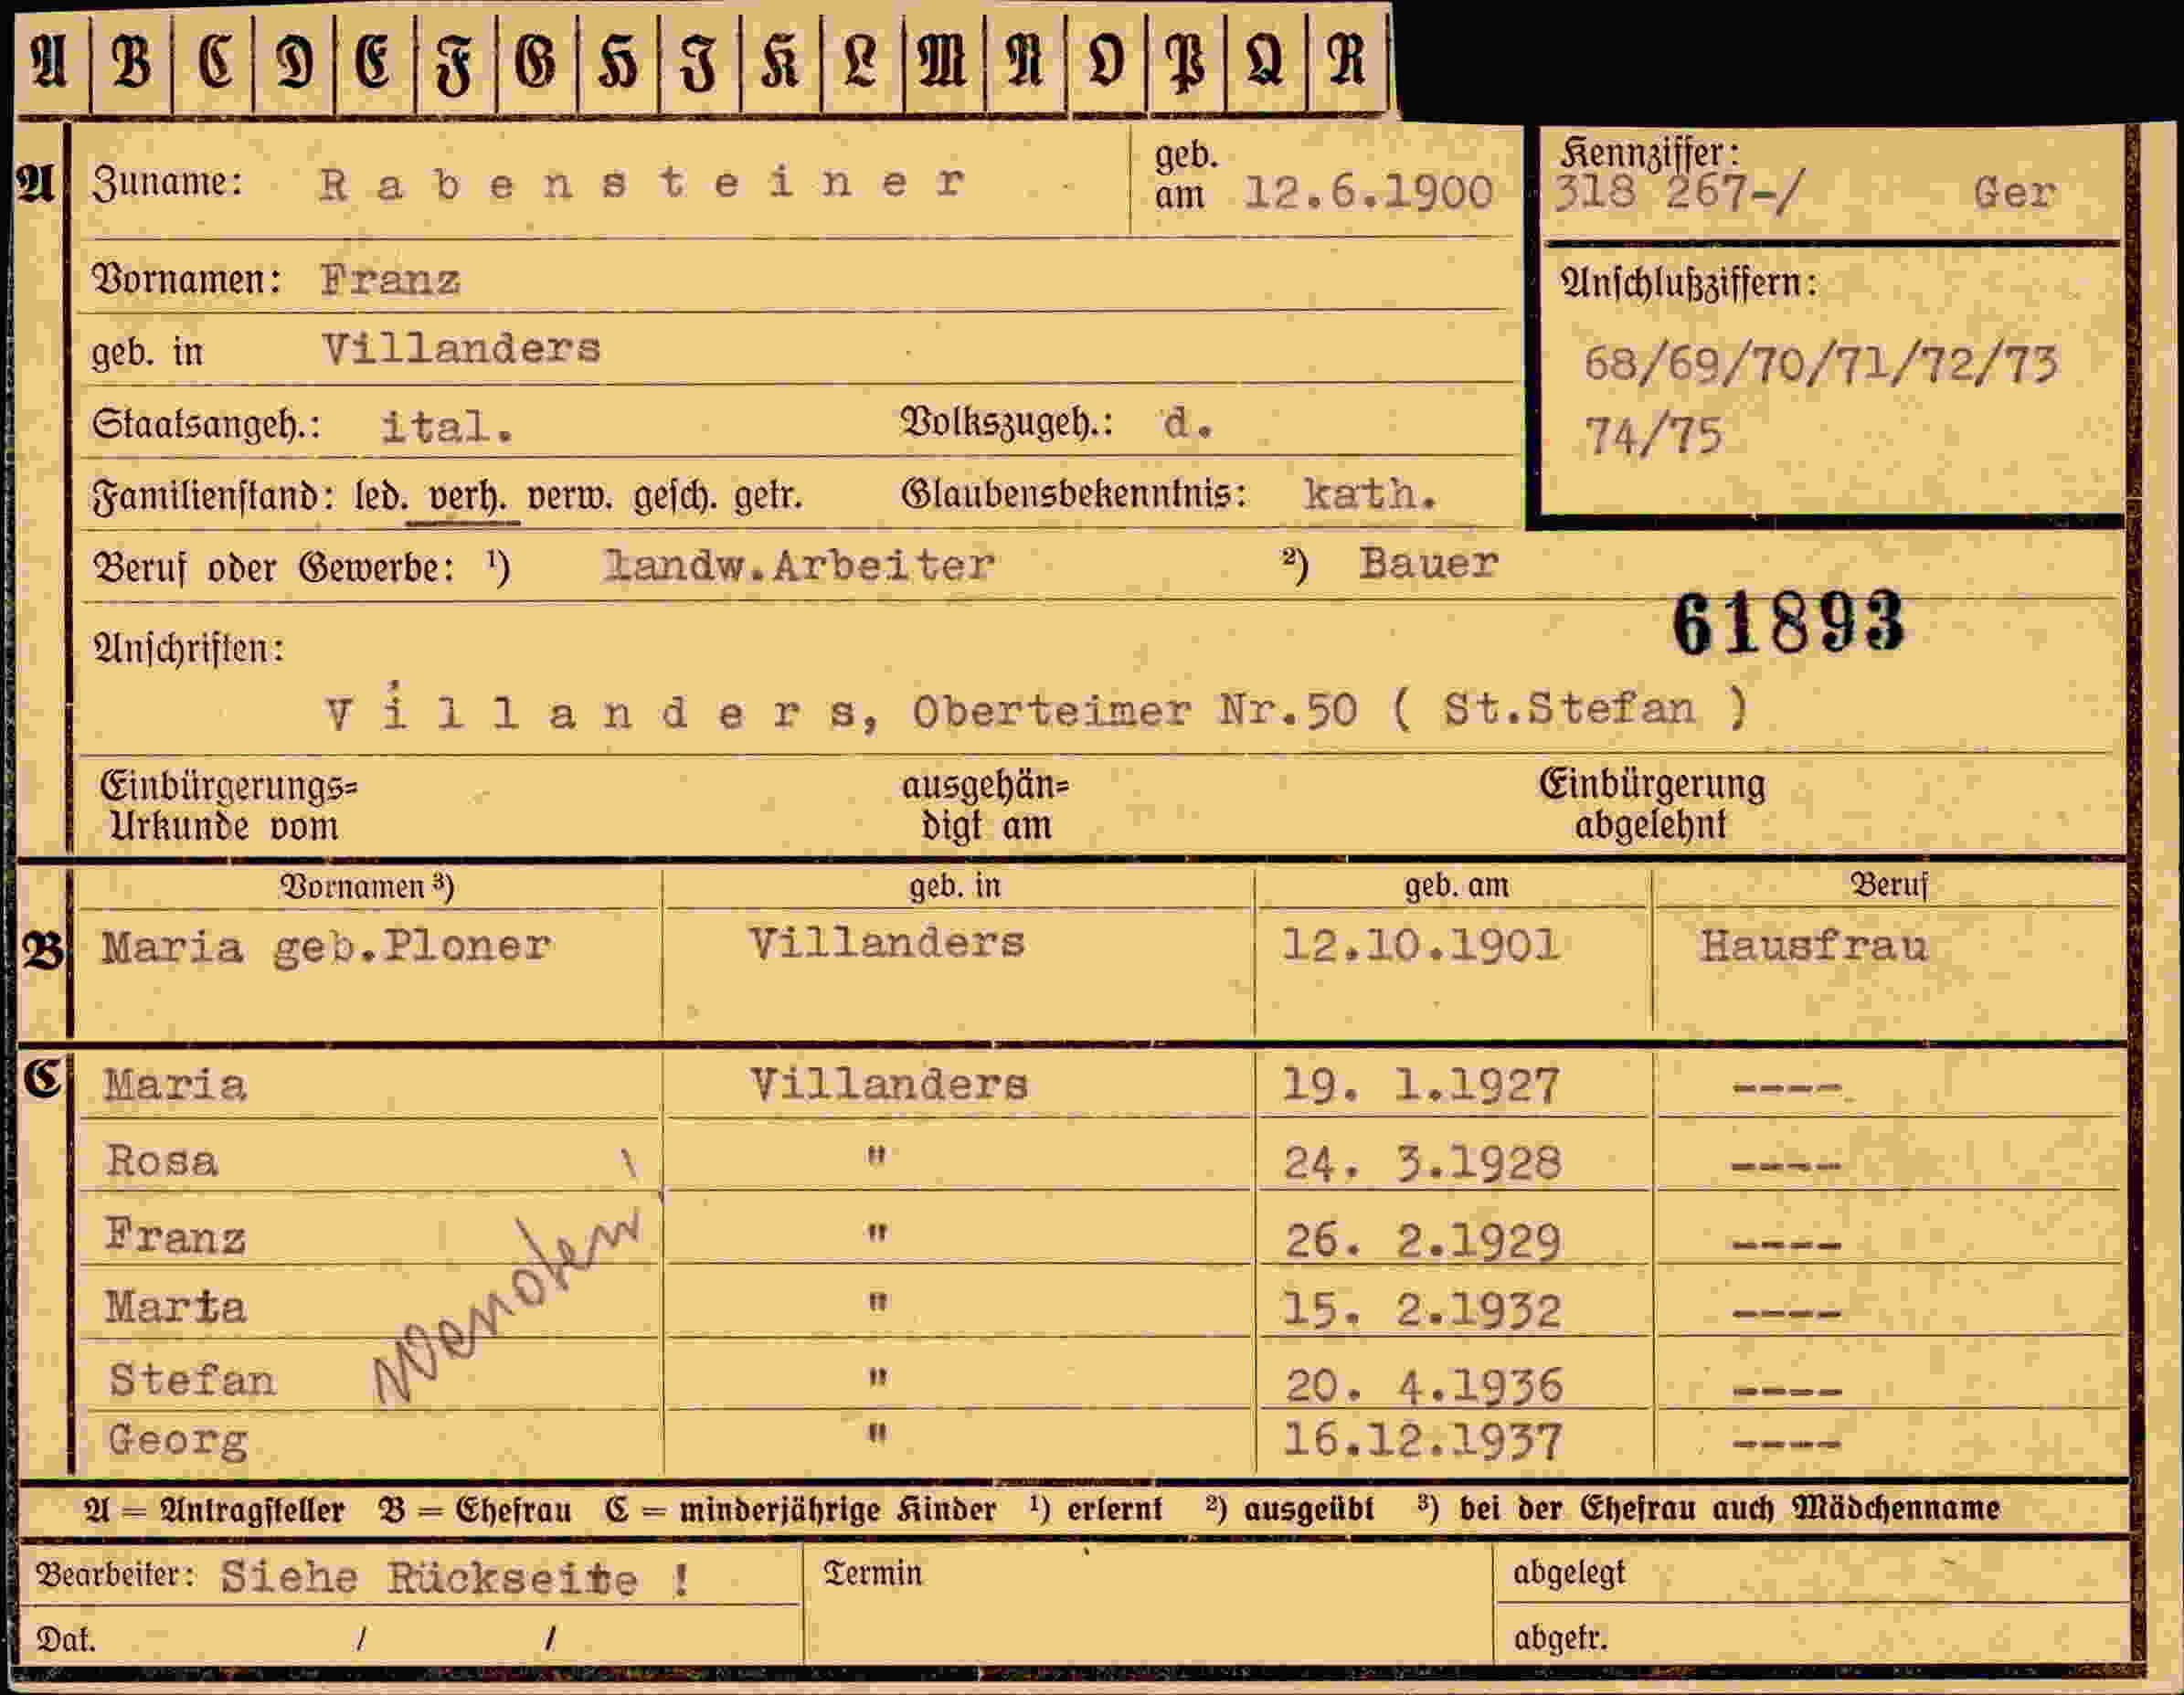 A B C D E F G H I K L M N O P Q R
A Zuname: Rabensteiner geb. am 12.6.1900
Kennziffer:
318 267-/ Ger
Vornamen: Franz
Anschlußziffern:
geb. in Villanders
68/69/70/71/72/73
Staatsangeh.: ital. Volkszugeh.: d.
74/75
Familienstand: led. verh. verw. gesch. getr. Glaubensbekenntnis: kath.
Beruf oder Gewerbe: ¹) landw.Arbeiter ²) Bauer
61893
Anschriften:
Villanders, Oberteimer Nr.50 ( St.Stefan )
Einbürgerungs= ausgehän= Einbürgerung
Urkunde vom digt am abgelehnt
Vornamen ³) geb. in geb. am Beruf
B Maria geb.Ploner Villanders 12.10.1901 Hausfrau
C Maria Villanders 19. 1.1927 ----
Rosa " 24. 3.1928 ----
Franz " 26. 2.1929 ----
Marta " 15. 2.1932 ----
Stefan " 20. 4.1936 ----
Georg " 16.12.1937 ----
Wenden!
A = Antragsteller B = Ehefrau C = minderjährige Kinder ¹) erlernt ²) ausgeübt ³) bei der Ehefrau auch Mädchenname
Bearbeiter: Siehe Rückseite ! Termin abgelegt
Dat. / / abgetr.